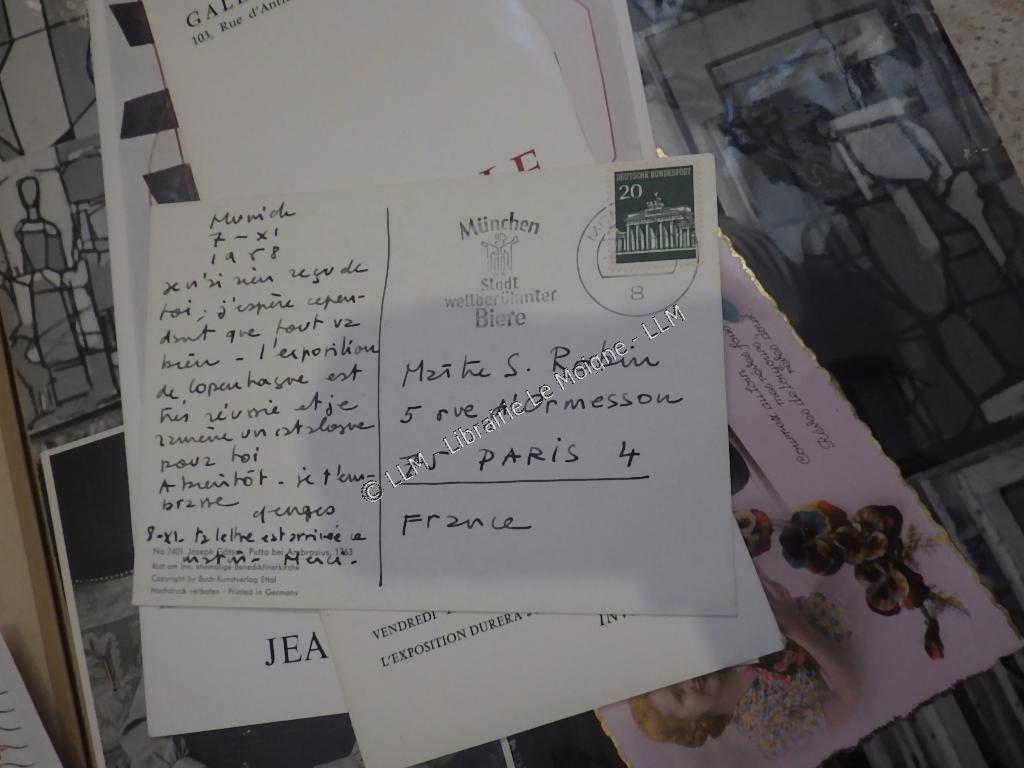 GALE
103, Rue d'Anti
LE
Munich
7-XI
1968
je n'ai rien reçu de
toi, j'espère cepen-
dant que tout va
bien - l'exposition
de Copenhague est
très réussie et je
ramène un catalogue
pour toi
A bientôt - je t'em-
brasse
8-XI. ta lettre est arrivée ce
matin. Merci.
No 7401 Joseph Götsch, Putto bei Ambrosius, 1763
Rott am Inn, ehemalige Benediktinerkirche
Copyright by Buch-Kunstverlag Ettal
Nachdruck verboten - Printed in Germany
München
Stadt
weltberühmter
Biere
DEUTSCHE BUNDESPOST
20
8
Maître S.
5 rue d'Ormesson
PARIS 4
France
© LLM - Librairie Le Moigne - LLM
JEA
VENDREDI
L'EXPOSITION DURERA
INV